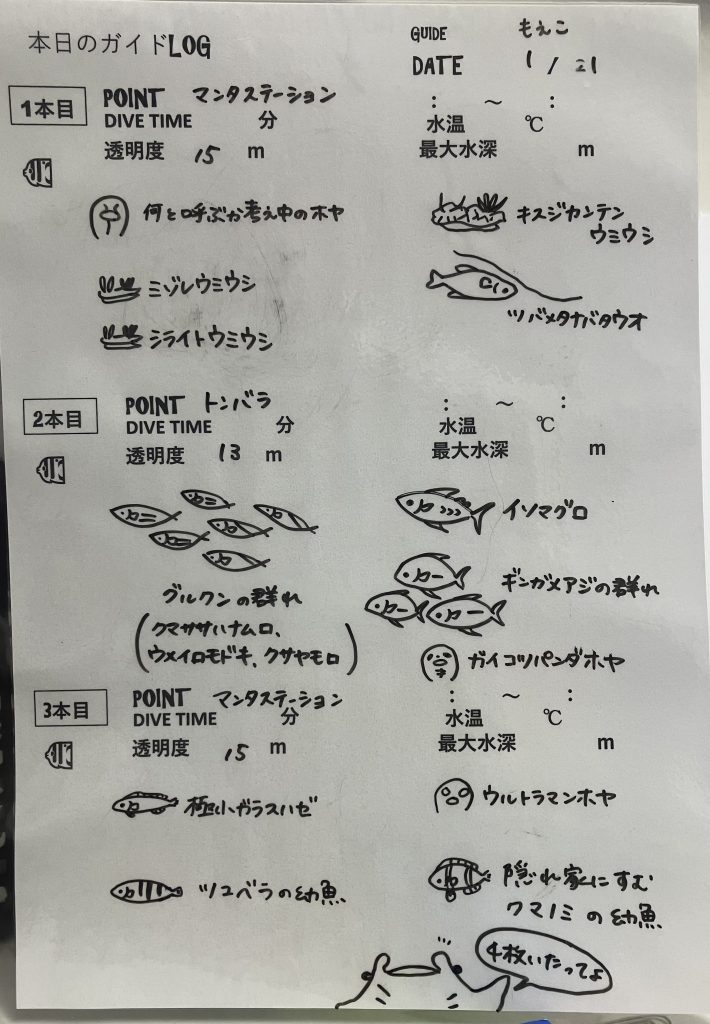 本日のガイドLOG
GUIDE もえこ
DATE 1 / 21
1本目
POINT マンタステーション
DIVE TIME 分
透明度 15 m
: ～ :
水温 ℃
最大水深 m
何と呼ぶか考え中のホヤ
キスジカンテン
ウミウシ
ミゾレウミウシ
ツバメタナバタウオ
シライトウミウシ
2本目
POINT トンバラ
DIVE TIME 分
透明度 13 m
: ～ :
水温 ℃
最大水深 m
イソマグロ
グルクンの群れ
(クマササハナムロ、
ウメイロモドキ、クサヤモロ)
ギンガメアジの群れ
ガイコツパンダホヤ
3本目
POINT マンタステーション
DIVE TIME 分
透明度 15 m
: ～ :
水温 ℃
最大水深 m
極小ガラスハゼ
ウルトラマンホヤ
ツユベラの幼魚
隠れ家にすむ
クマノミの幼魚
4枚いたってよ